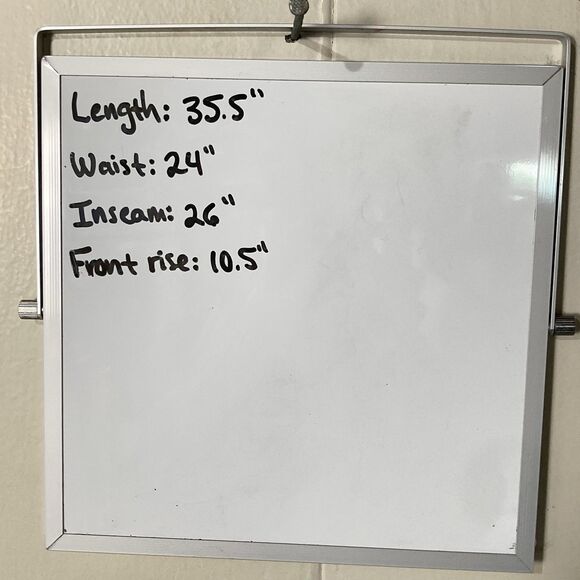 Length: 35.5"
Waist: 24"
Inseam: 26"
Front rise: 10.5"